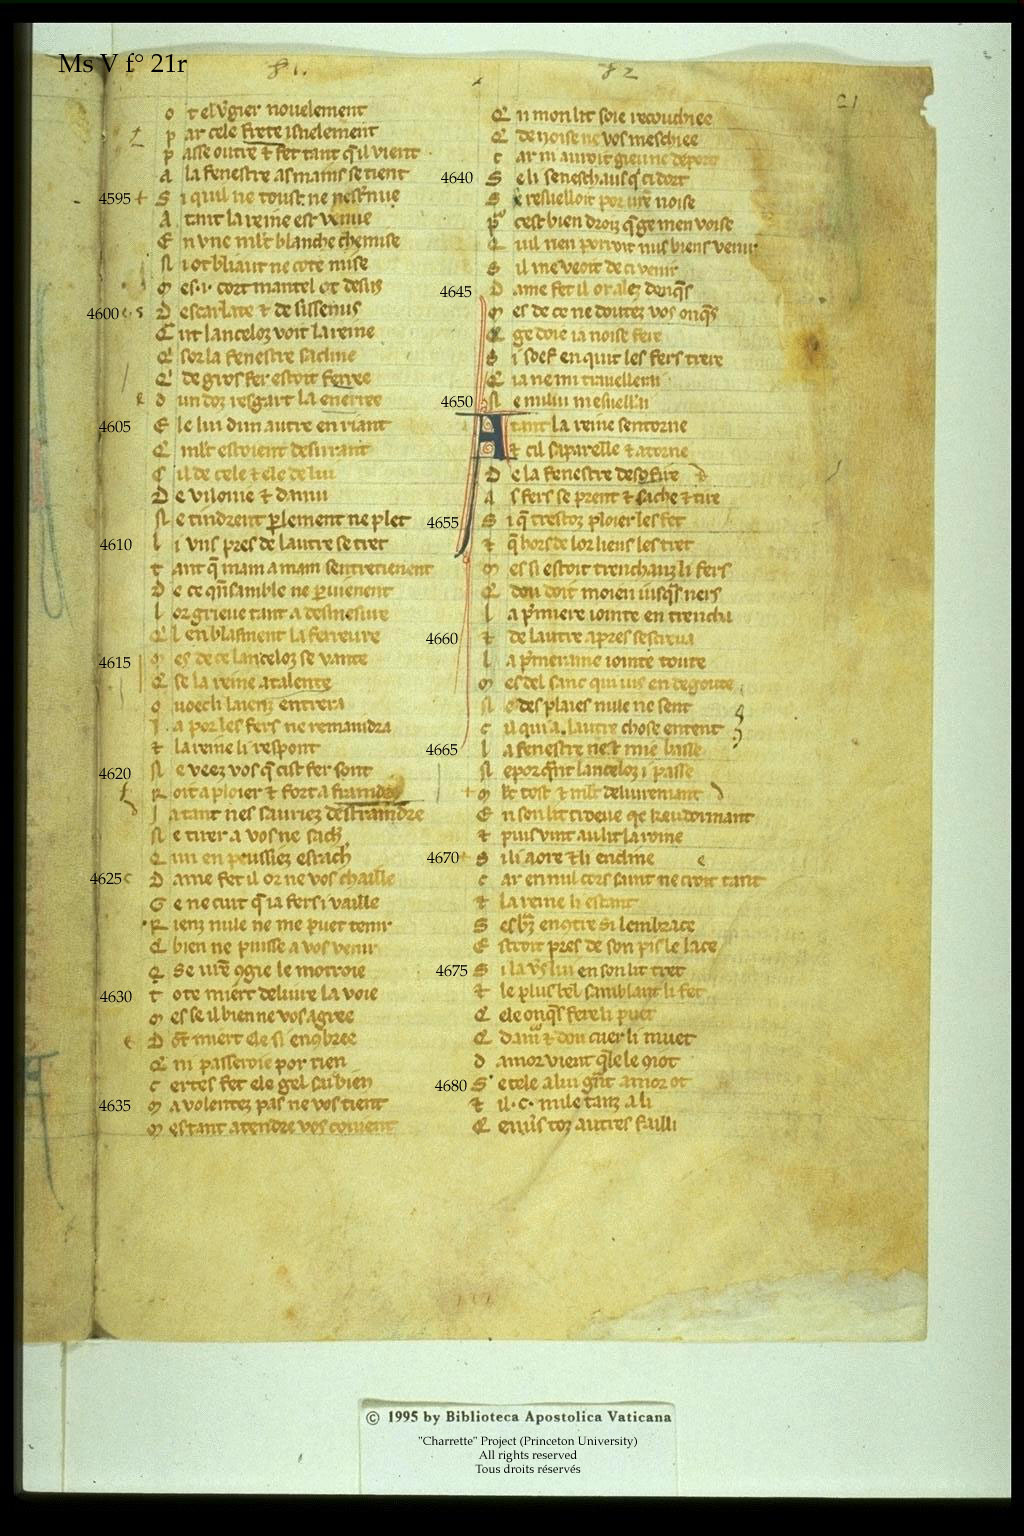 Ms V f° 21r
21
o t el v̾gier nouelement
p ar cele frete isnelement
p asse outre ⁊ fet tant q̃ il vient
A la fenestre as mains se tient
4595 S i quil ne toust ne nest̾nue
A tant la reine est venue
E n vne ml̃t blanche chemise
N i ot bliaut ne cote mise
M es .i. cort mantel ot desus
4600 D escarlate ⁊ de sissemus
Q nt lanceloz voit la reine
Q sor la fenestre sacline
Q de gros fer estoit ferree
d un doz resgart la enerree
4605 E le lui dun autre en riant
Q ml̃t estoient desirrant
C il de cele ⁊ ele de lui
D e vilonie ⁊ danui
N e tindrent ꝑlement ne plet
4610 l i vns pres de lautre se tret
t ant q̃ main a main sentretienent
D e ce qñ samble ne ꝑuienent
l or grieue tant a desmesure
Q l en blasment la ferreure
4615 M es de ce lanceloz se vante
Q se la reine atalente
o uoech laienz entrera
J a por les fers ne remaindra
⁊ la reine li respont
4620 N e veez vos q̃ cist fer sont
R oit a ploier ⁊ fort a fraindre
J a tant nes sauriez destraindre
N e tirer a vos ne sach̾
Q un en peussiez esrach̾
4625 D ame fet il or ne vos chaille
G e ne cuit q̃ ia fers i vaille
R ienz nule ne me puet tenir
Q bien ne puisse a vos venir
Q se vr̃e ꝯgie le motroie
4630 t ote miert deliure la voie
M es se il bien ne vos agree
D ont miert ele si enꝯbree
Q ni passeroie por rien
c ertes fet ele gel su bien
4635 M a volentez pas ne vos tient
M es tant atendre vos couient
Q n mon lit soie recouchiee
Q de noise ne vos meschiee
c ar ni auroit gieu ne deport
4640 S e li seneschaus q̃ ci dort
S e resueilloit por vr̃e noise
p cest bien droiz q̃ ge men voise
Q uil rien porroit nus biens venir
S il me veoit de ci venir
4645 D ame fet il or alez donq̃s
M es de ce ne doutez vos onq̃s
Q ge doie ia noise fere
S i soef en quit les fers trere
Q ia ne mi trauellerai
4650 N e nului nesuell̾ai
A tant la reine sentorne
⁊ cil saparelle ⁊ atorne
D e la fenestre desꝯfire
A s fers se prent ⁊ sache ⁊ tire
4655 S i q̃ trestoz ploier les fet
⁊ q̃ hors de lor liens les tret
M es si estoit trenchanz li fers
Q dou doit moien iusq̃s ners
l a pͥmiere iointe en trencha
4660 ⁊ de lautre apres sescreua
l a pͥmeraine iointe toute
M es del sanc qui ius en degoute
N e des plaies nule ne sent
c il qui a lautre chose entent
4665 l a fenestre nest mie basse
N eporq̃nt lanceloz i passe
M lt̃ tost ⁊ ml̃t deliurement
E n son lit treuue qe keu dormant
⁊ puis vint au lit la roine
4670 S i li aore ⁊ li encline
c ar en nul cors saint ne croit tant
⁊ la reine li estant
S es bz̃ enꝯtre si lembrace
E stroit pres de son pis le lace
4675 S i la v̾s lui en son lit tret
⁊ le plus bel samblant li fet
Q ele onq̃s fere li puet
Q dam̃ ⁊ dou cuer li muet
D amor vient q̃le le ꝯiot
4680 S ele a lui gñt amor ot
⁊ il .c. mile tanz a li
Q en v̾s toz autres failli
© 1995 by Biblioteca Apostolica Vaticana
"Charrette" Project (Princeton University)
All rights reserved
Tous droits réservés